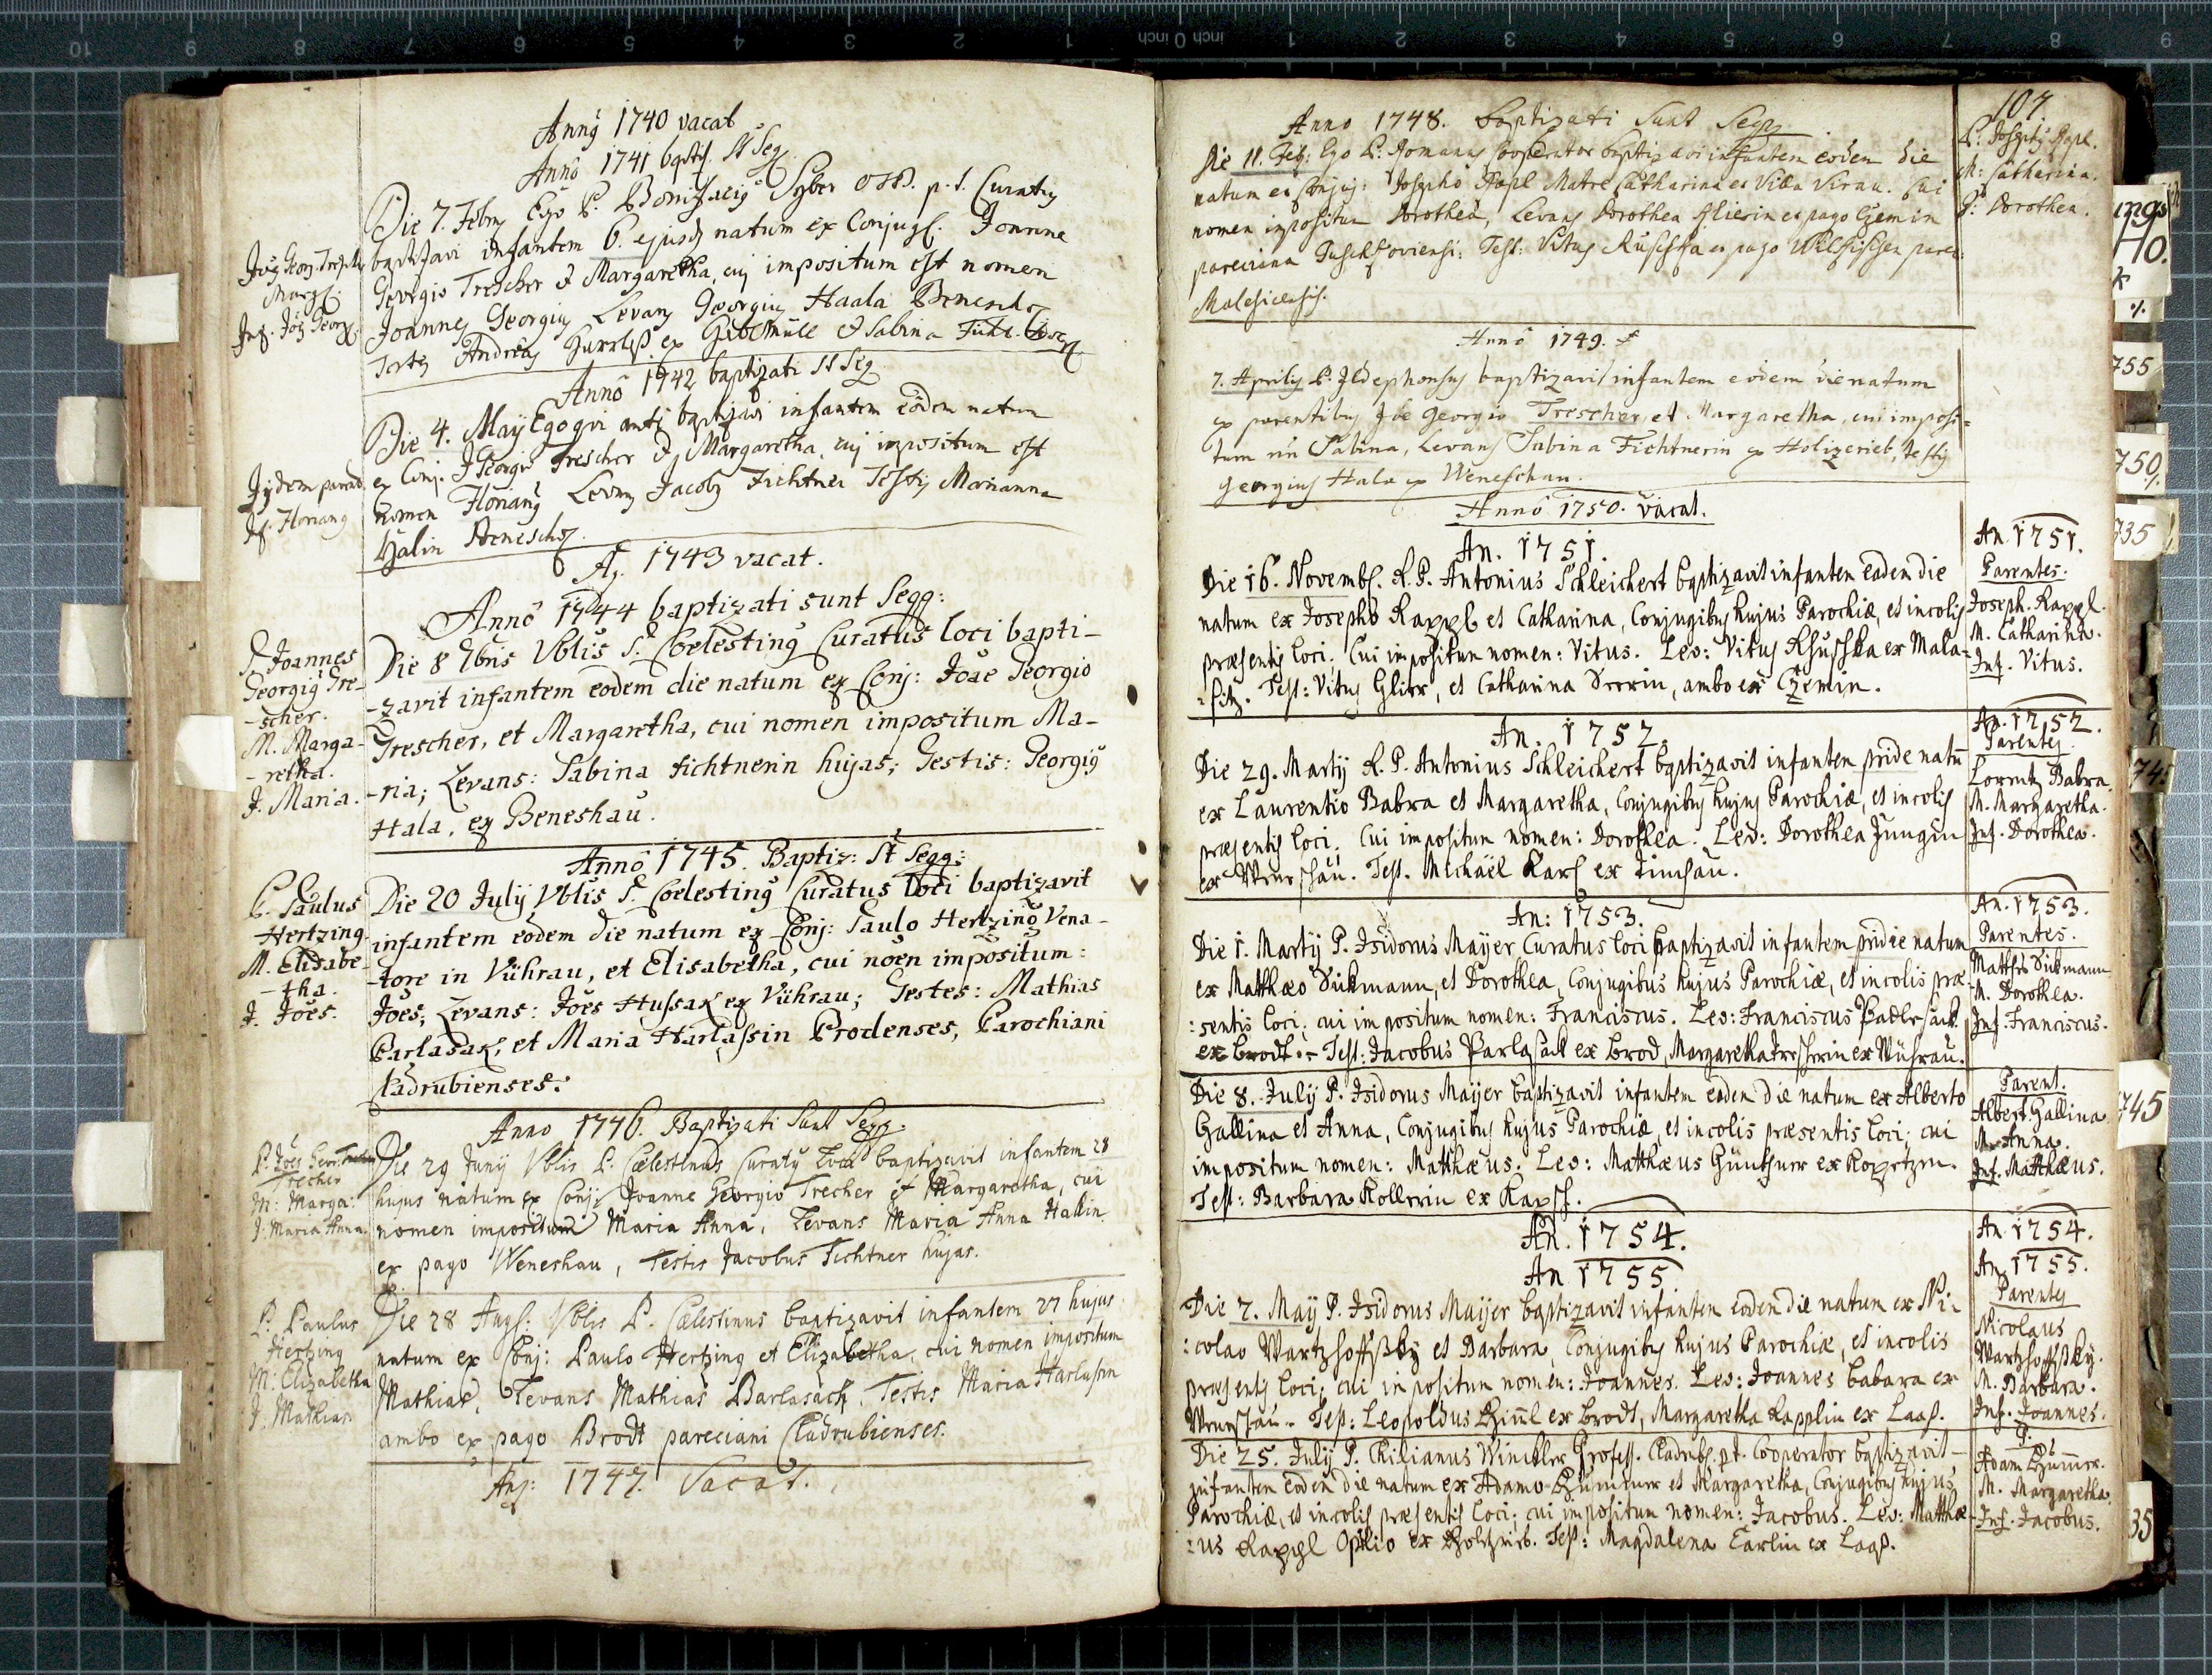 Annȳ 1740 vacat
Annô 1741 baptiz. st Seg
Die 7. Febrȳ Ego P. Bonifacig Syber OSB. p. t. Curatg
baptizavi infantem 6. ejusd natum ex Conjug. Joanne
Georgio Trescher et Margaretha, cuj impositum est nomen
Joannes Georgig Levans Georgig Haala Benesch
Testis Andreas ex et Sabina
Joēs Georg. Trescher
Marg.
Inf. Joēs Georg.
Annô 1742 baptizati st Seg
Die 4. Maÿ Ego qui baptizavi infantem eôdem natum
ex Conj. J Georgio Trescher et Margaretha, cuj impositum est
nomen Floriang Levans Jacob Fichtner Testis Marianna
Halin Benesch
Ijdem parent
If. Floriang
Aō. 1743 vacat.
Annô 1744 baptizati sunt Segq:
Die 8 Xbris Vblis P. Coelesting Curatus loci bapti-
-zavit infantem eodem die natum ex Conj: Joāe Georgio
Trescher, et Margaretha, cui nomen impositum Ma-
-ria; Levans: Sabina Fichtnerin hujas; Testis: Georgig
Hala, ex Beneshau.
P. Joannes
Georgig Tre-
-scher.
M. Marga-
-retha.
J. Maria.
Annô 1745. Baptiz: st Segq:
Die 20 Julij Vblis P. Coelesting Curatus loci baptizavit
infantem eodem die natum ex Conj: Paulo Hertzing Vena-
-tore in Vührau, et Elisabetha, cui nōen impositum:
Joēs; Levans: Joēs Hussak ex Vührau; Testes: Mathias
Parlasak, et Maria Harlassin Brodenses, Parochiani
Kladrubienses.
P. Paulus
Hertzing.
M. Elisabe-
-tha.
J. Joēs.
Anno 1746. Baptizati Sunt Seqq.
Die 29 Junij Vblis P. Cœlestinus Curatg Loci baptizavit infantem 28
hujus natum ex Conj: Joanne Georgio Trecher et Margaretha, cui
nomen impositum Maria Anna, Levans Maria Anna Hallin
ex pago Weneshau, Testis Jacobus Fichtner hujas.
P. Joēs Geor:
Trecher
M: Marga:
J: Maria Anna.
Die 28 Aug: Vblis P. Cœlestinus baptizavit infantem 27 hujus
natum ex Conj: Paulo Hertzing et Elizabetha, cui nomen impositum
Mathias, Levans Mathias Barlasack, Testis Maria Harlassin
ambo ex pago Brodt pareciani Cladrubienses.
P: Paulus
Hertzing
M: Elizabetha
J: Mathias
Anō: 1747. Vacat.
107.
Anno 1748. baptizati Sunt Seqq
Die 11. Feb: Ego P: Romanus Cooperator baptizavi infantem eodem die
natum ex Conjug: Josepho Rapl Matre Catharina ex Villa Virau. Cui
nomen impositum Dorothea, Levans Dorothea Glierin ex pago Czemin
pareciana Tuschkoviensi: Test: Vitus Ruschka ex pago parec:
Malesicensis.
P: Joseph Rapl.
M: Catharina.
J: Dorothea.
Annô 1749.
7. Aprilis P. Ildephonsus baptizavit infantem eodem die natum
ex parentibus Joē Georgio Trescher, et Margaretha, cui imposi=
tum nn Sabina, Levans Sabina Fichtnerin ex Holizerieb, testis
Georgius Hala ex Weneschau.
Annô 1750. vacat.
An. 1751.
Die 16. Novemb. R. P. Antonius Schleichert baptizavit infantem eadem die
natum ex Josepho Rappl et Catharina, Conjugibus hujus Parochiæ, et incolis
præsentis loci. Cui impositum nomen: Vitus. Lev: Vitus Rhuschka ex Mala-
:sitz. Test: Vitus Glier, et Catharina ambo ex Czemin.
An. 1751.
Parentes.
Joseph. Rappl.
M. Catharina.
Inf. Vitus.
An. 1752.
Die 29. Martij R. P. Antonius Schleichert baptizavit infantem pridie natū
ex Laurentio Babra et Margaretha, Conjugibus hujus Parochiæ, et incolis
præsentis loci. Cui impositum nomen: Dorothea. Lev: Dorothea Jungin
ex Wenschau. Test. Michaël Karl ex
An. 1752.
Parentes.
Lorentz Babra
M. Margaretha.
Inf. Dorothea.
An: 1753.
Die 1. Martij P. Isidorus Maÿer Curatus loci baptizavit infantem pridie natum
ex Matthæo Sickmann, et Dorothea, Conjugibus hujus Parochiæ, et incolis præ-
:sentis loci; cui impositum nomen: Franciscus. Lev: Franciscus
ex brodt. Test: Jacobus Parlasack ex brod, Margaretha Treschrin ex Wuhrau.
An. 1753.
Parentes.
Matths Sickmann
M. Dorothea.
Inf. Franciscus.
Die 8. Julij P. Isidorus Maÿer baptizavit infantem eodem die natum ex Alberto
Gallina et Anna, Conjugibus hujus Parochiæ, et incolis præsentis loci; cui
impositum nomen: Matthæus. Lev: Matthæus Günthner ex Kopetzen.
Test: Barbara Kollerin ex Kapsch.
Parent.
Albert. Gallina
M. Anna.
Inf. Matthæus.
An. 1754.
An 1755
Die 7. May P. Isidorus Maÿer baptizavit infantem eodem die natum ex Ni-
:colao Wartzhoffskÿ et Barbara, Conjugibus hujus Parochiæ, et incolis
præsentis loci; cui impositum nomen: Joannes. Lev: Joannes babara ex
Wenschau. Test: Leopoldus ex brodt, Margaretha Rapplin ex Laas.
An. 1754.
An. 1755.
Parentes
Nicolaus
Wartzhoffskÿ.
M. Barbara.
Inf. Joannes.
Die 25. Julij P. Chilianus Winckler Profess. Cladrub. p.t. Cooperator baptizavit
infantem eodem die natum ex Adamo et Margaretha, Conjugibus hujus
Parochiæ, et incolis præsentis loci; cui impositum nomen: Jacobus. Lev: Matthæ-
:us Rappl Opilio ex Holtzrieb. Test: Magdalena Carlin ex Laas.
P.
Adam
M. Margaretha.
Inf. Jacobus.
755
750
735
745
35
10 9 8 7 6 5 4 3 2 1 inch 0 inch 1 2 3 4 5 6 7 8 9